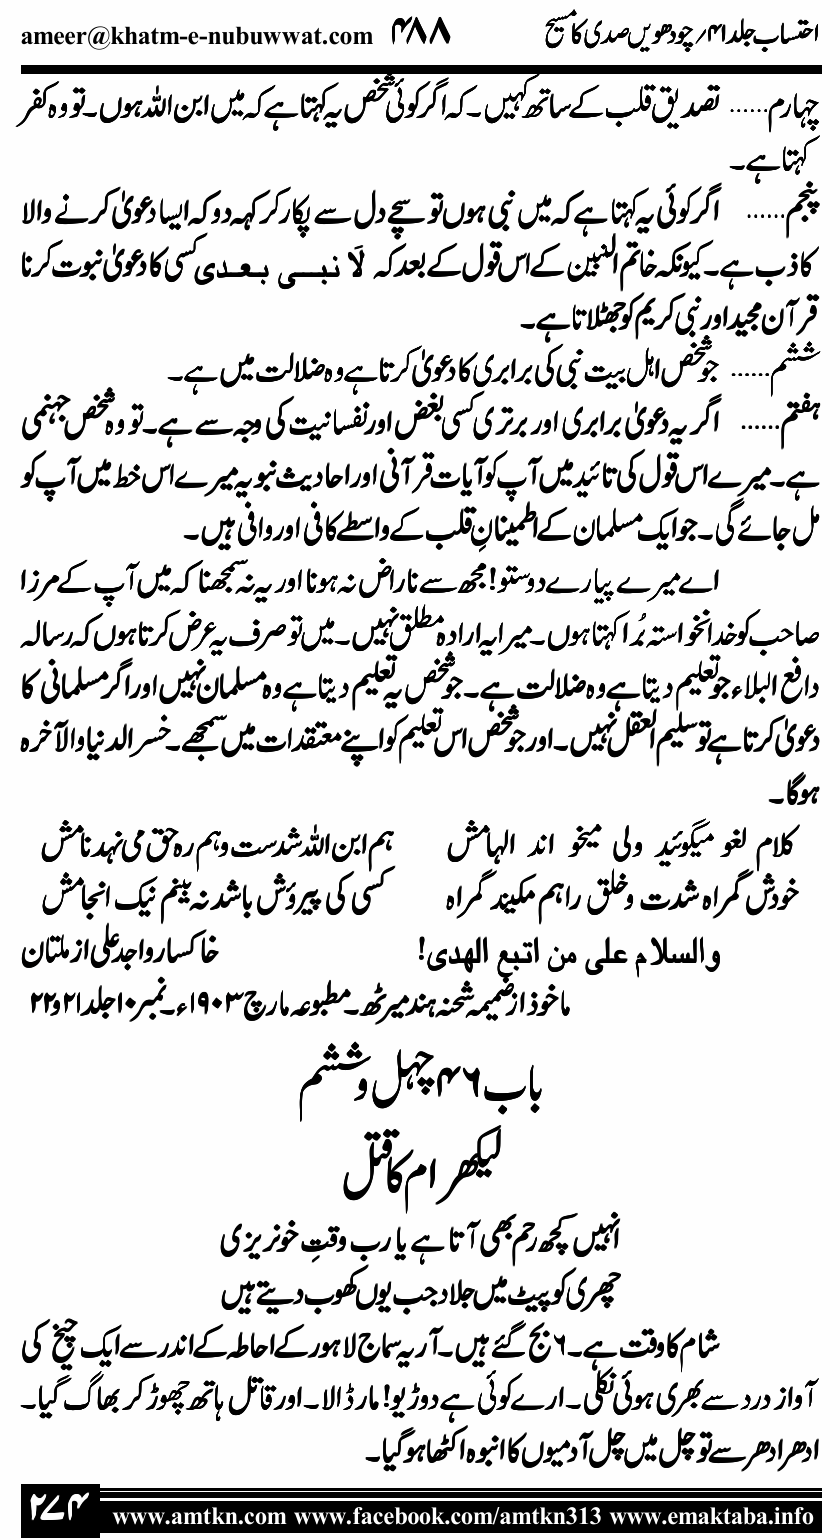 احتساب جلد ۴۱؍ چودھویں صدی کا مسیح ۴۸۸ ameer@khatm-e-nubuwwat.com
چہارم...... تصدیق قلب کے ساتھ کہیں۔ کہ اگر کوئی شخص یہ کہتا ہے کہ میں ابن اللہ ہوں۔ تو وہ کفر
کہتا ہے۔
پنجم...... اگر کوئی یہ کہتا ہے کہ میں نبی ہوں تو سچے دل سے پکار کر کہہ دو کہ ایسا دعویٰ کرنے والا
کاذب ہے۔ کیونکہ خاتم النبیین کے اس قول کے بعد کہ لَا نبی بعدی کسی کا دعویٰ نبوت کرنا
قرآن مجید اور نبی کریم کو جھٹلاتا ہے۔
ششم...... جو شخص اہل بیت نبی کی برابری کا دعویٰ کرتا ہے وہ ضلالت میں ہے۔
ہفتم...... اگر یہ دعویٰ برابری اور برتری کسی بغض اور نفسانیت کی وجہ سے ہے۔ تو وہ شخص جہنمی
ہے۔ میرے اس قول کی تائید میں آپ کو آیات قرآنی اور احادیث نبویہ میرے اس خط میں آپ کو
مل جائے گی۔ جو ایک مسلمان کے اطمینانِ قلب کے واسطے کافی اور وافی ہیں۔
اے میرے پیارے دوستو! مجھ سے ناراض نہ ہونا اور یہ نہ سمجھنا کہ میں آپ کے مرزا
صاحب کو خدانخواستہ بُرا کہتا ہوں۔ میرا یہ ارادہ مطلق نہیں۔ میں تو صرف یہ عرض کرتا ہوں کہ رسالہ
دافع البلاء جو تعلیم دیتا ہے وہ ضلالت ہے۔ جو شخص یہ تعلیم دیتا ہے وہ مسلمان نہیں اور اگر مسلمانی کا
دعویٰ کرتا ہے تو سلیم العقل نہیں۔ اور جو شخص اس تعلیم کو اپنے معتقدات میں سمجھے۔ خسر الدنیا والآخرہ
ہوگا۔
کلام لغو میگوئید ولی میخو اند الہامش ہم ابن اللہ شدست وہم رہ حق می نہد نامش
خودش گمراہ شدت وخلق راہم مکیند گمراہ کسی کی پیروش باشد نہ بینم نیک انجامش
والسلام علی من اتبع الھدی! خاکسار واجد علی از ملتان
ماخوذ از ضمیمہ شحنہ ہند میرٹھ۔ مطبوعہ مارچ ۱۹۰۳ء۔ نمبر ۱۰ جلد ۲۱ و ۲۲
باب ۴۶ چہل وششم
لیکھرام کا قتل
انہیں کچھ رحم بھی آتا ہے یا رب وقتِ خونریزی
چھری کو پیٹ میں جلاد جب یوں کھوب دیتے ہیں
شام کا وقت ہے۔ ۶ بج گئے ہیں۔ آریہ سماج لاہور کے احاطہ کے اندر سے ایک چیخ کی
آواز درد سے بھری ہوئی نکلی۔ ارے کوئی ہے دوڑیو! مار ڈالا۔ اور قاتل ہاتھ چھوڑ کر بھاگ گیا۔
ادھر ادھر سے تو چل میں چل آدمیوں کا انبوہ اکٹھا ہوگیا۔
۲۷۴ www.amtkn.com www.facebook.com/amtkn313 www.emaktaba.info